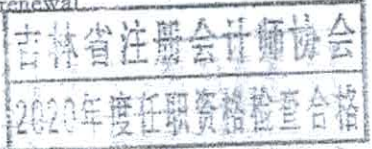 renewal
吉林省注册会计师协会
2020年度任职资格检查合格